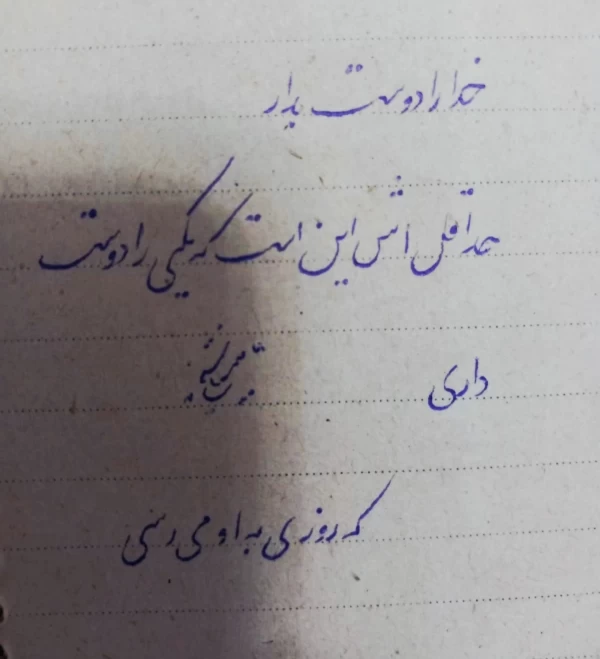 خدا را دوست بدار
حداقل اش این است که یکی را دوست
داری
که روزی به او می رسی